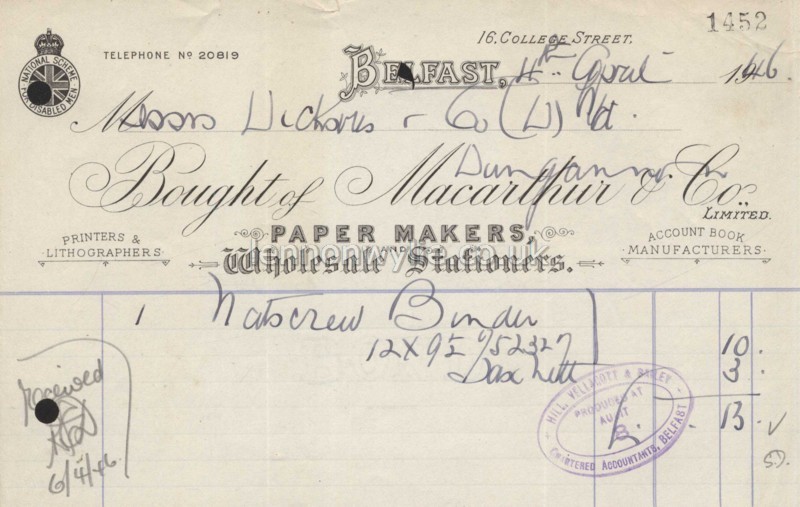 1452
16. COLLEGE STREET.
TELEPHONE Nº 20819
NATIONAL SCHEME
FOR DISABLED MEN
BELFAST, 4th April 1946.
Messrs Dicksons & Co (D) Ltd.
Dungannon
Bought of Macarthur & Co.,
LIMITED.
PRINTERS &
LITHOGRAPHERS
PAPER MAKERS,
AND
Wholesale Stationers.
ACCOUNT BOOK
MANUFACTURERS
lennonwylie.co.uk
1 Natscrew Binder
12 X 9½ /52327 10.
3.
13.
HILL, VELLACOTT & BAILEY
PRODUCED AT
AUDIT
CHARTERED ACCOUNTANTS, BELFAST
received
6/4/46